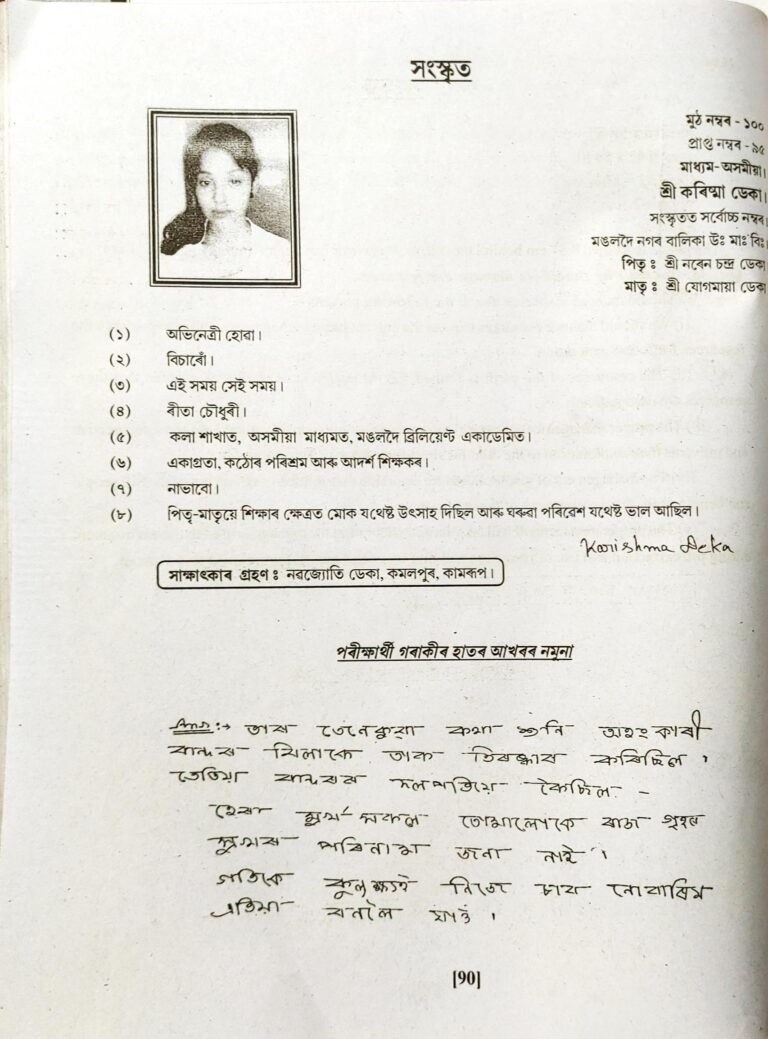 সংস্কৃত
মুঠ নম্বৰ - ১০০
প্ৰাপ্ত নম্বৰ - ৯৫
মাধ্যম- অসমীয়া।
শ্ৰী কৰিষ্মা ডেকা।
সংস্কৃতত সৰ্বোচ্চ নম্বৰ।
মঙলদৈ নগৰ বালিকা উঃ মাঃ বিঃ
পিতৃ ঃ শ্ৰী নৰেন চন্দ্ৰ ডেকা
মাতৃ ঃ শ্ৰী যোগমায়া ডেকা
(১) অভিনেত্ৰী হোৱা।
(২) বিচাৰোঁ।
(৩) এই সময় সেই সময়।
(৪) ৰীতা চৌধুৰী।
(৫) কলা শাখাত, অসমীয়া মাধ্যমত, মঙলদৈ ব্ৰিলিয়েণ্ট একাডেমিত।
(৬) একাগ্ৰতা, কঠোৰ পৰিশ্ৰম আৰু আদৰ্শ শিক্ষকৰ।
(৭) নাভাবো।
(৮) পিতৃ-মাতৃয়ে শিক্ষাৰ ক্ষেত্ৰত মোক যথেষ্ট উৎসাহ দিছিল আৰু ঘৰুৱা পৰিৱেশ যথেষ্ট ভাল আছিল।
Karishma Deka
সাক্ষাৎকাৰ গ্ৰহণ ঃ নৱজ্যোতি ডেকা, কমলপুৰ, কামৰূপ।
পৰীক্ষাৰ্থী গৰাকীৰ হাতৰ আখৰৰ নমুনা
Ans:→ তাৰ তেনেকুৱা কথা শুনি অহংকাৰী
বান্দৰ বিলাকে তাক তিৰস্কাৰ কৰিছিল।
তেতিয়া বান্দৰৰ দলপতিয়ে কৈছিল -
হেৰা মূৰ্খ সকল তোমালোকে ৰজা গৃহৰ
সুখৰ পৰিনাম জনা নাই।
গতিকে কুলক্ষয় নিজে চাব নোৱাৰিম
এতিয়া বনলৈ যাওঁ।
[90]